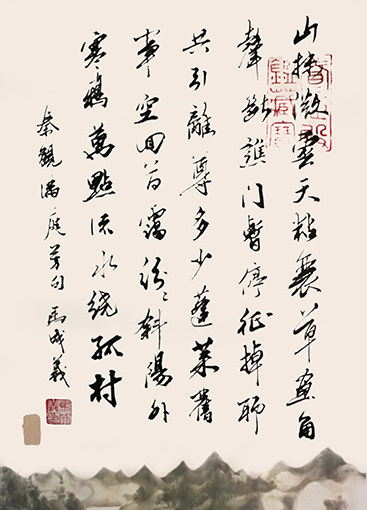 山抹微雲天粘衰草畫角
聲斷譙門暫停征棹聊
共引離尊多少蓬萊舊
事空回首靄紛〻斜陽外
寒鴉萬點流水繞孤村
秦觀滿庭芳句 馬成義